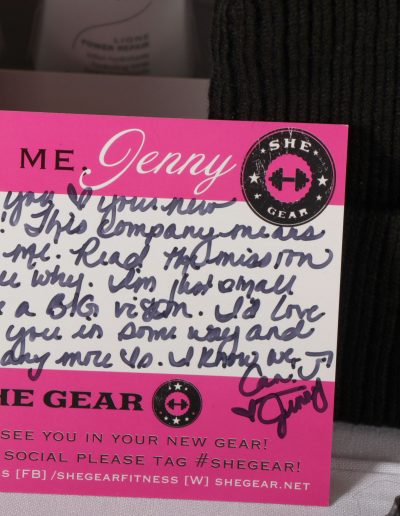 LIGNE
POWER REPAIR
ME, Jenny
SHE
GEAR
you ♡ your new
! This company means
me. Read the mission
why. I'm just small
a BIG vision. I'd love
you in some way and
any more ♡s. I know we
Can! :)
♡ Jenny
HE GEAR
SEE YOU IN YOUR NEW GEAR!
SOCIAL PLEASE TAG #SHEGEAR!
S [FB] /SHEGEARFITNESS [W] SHEGEAR.NET